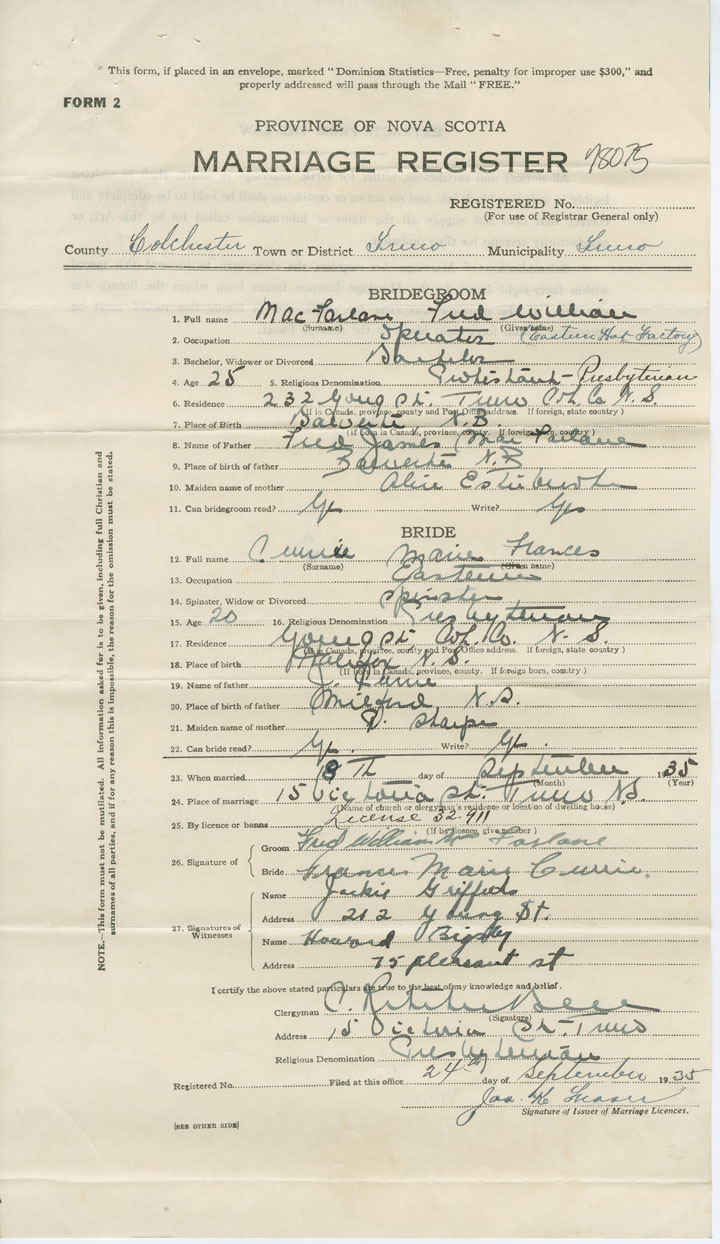 "This form, if placed in an envelope, marked "Dominion Statistics—Free, penalty for improper use $300," and
properly addressed will pass through the Mail "FREE."
FORM 2
PROVINCE OF NOVA SCOTIA
MARRIAGE REGISTER 78075
REGISTERED No.
(For use of Registrar General only)
County Colchester Town or District Truro Municipality Truro
BRIDEGROOM
1. Full name MacFarlane Fred William
(Surname) (Given name)
2. Occupation Operator (Eastern Hat Factory)
3. Bachelor, Widower or Divorced Bachelor
4. Age 25 5. Religious Denomination Protestant-Presbyterian
6. Residence 232 Young St. Truro Col. Co N.S.
(If in Canada, province, county and Post Office address. If foreign, state country )
7. Place of Birth N.B.
(If born in Canada, province, county. If foreign born, country )
8. Name of Father Fred James MacFarlane
9. Place of birth of father N.B
10. Maiden name of mother Alice
11. Can bridegroom read? Yes Write? Yes
BRIDE
12. Full name Currie Marie Frances
(Surname) (Given name)
13. Occupation
14. Spinster, Widow or Divorced Spinster
15. Age 20 16. Religious Denomination Presbyterian
17. Residence Young St. Col. Co. N.S.
(If in Canada, province, county and Post Office address. If foreign, state country )
18. Place of birth Halifax N.S.
(If born in Canada, province, county. If foreign born, country )
19. Name of father J. Currie
20. Place of birth of father Milford N.S.
21. Maiden name of mother Sharpe
22. Can bride read? Yes. Write? Yes.
23. When married 18th day of September 1935
(Month) (Year)
24. Place of marriage 15 Victoria St. Truro N.S.
(Name of church or clergyman's residence or location of dwelling house)
25. By licence or banns License 32-911
(If by licence, give number )
26. Signature of
Groom Fred William Mac Farlane
Bride Frances Marie Currie.
27. Signatures of Witnesses
Name Jackie Griffods
Address 212 Young St.
Name Howard Bigsby
Address 75 pleasant st
I certify the above stated particulars are true to the best of my knowledge and belief.
Clergyman C. Ritchie Bell
(Signature)
Address 15 Victoria St-Truro
Religious Denomination Presbyterian
Registered No. Filed at this office 24th day of September 1935
Jas. K Fraser
Signature of Issuer of Marriage Licences.
[SEE OTHER SIDE]
NOTE.—This form must not be mutilated. All information asked for is to be given, including full Christian and
surnames of all parties, and if for any reason this is impossible, the reason for the omission must be stated.